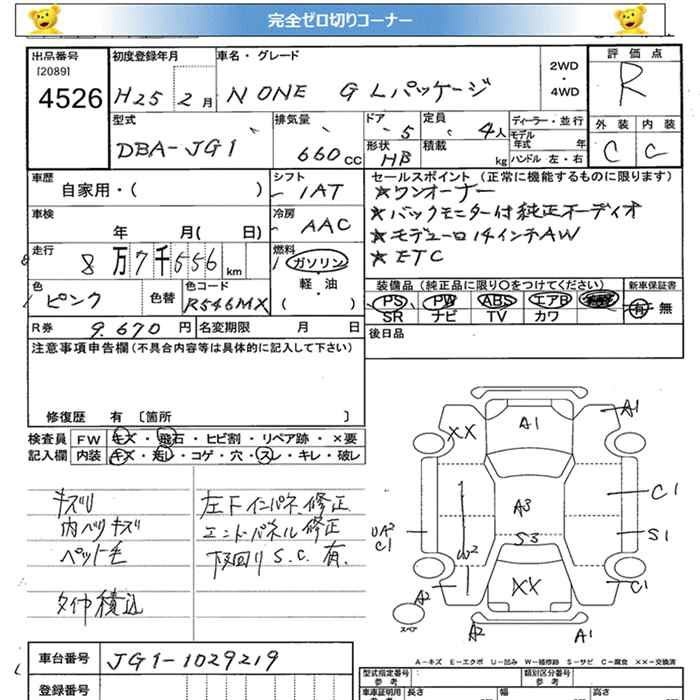 完全ゼロ切りコーナー
出品番号
[2089]
4526
初度登録年月
H25 2月
車名・グレード
N ONE G Lパッケージ
2WD
・
4WD
評価点
R
外装 内装
C C
型式
DBA-JG1
排気量
660cc
ドア
5
形状
HB
定員
4人
積載
kg
ディーラー・並行
モデル
年式 年
ハンドル 左・右
車歴
自家用・( )
シフト
IAT
車検
年 月( 日)
冷房
AAC
走行
8万7千656km
燃料
ガソリン
軽・油
( )
色
ピンク
色替
色コード
R546MX
R券 9,670円 名変期限 月 日
セールスポイント (正常に機能するものに限ります)
★ワンオーナー
★バックモニター付純正オーディオ
★モデューロ14インチAW
★ETC
装備品 (純正品に限り○をつけてください)
PS PW ABS エアB
SR ナビ TV カワ
新車保証書
有・無
後日品
注意事項申告欄(不具合内容等は具体的に記入して下さい)
修復歴 有 〔箇所 〕
検査員 FW キズ・飛石・ヒビ割・リペア跡・×要
記入欄 内装 キズ・汚レ・コゲ・穴・スレ・キレ・破レ
キズU
内ヘリキズ
ペット毛
タイヤ積込
左Fインパネ修正
エンドパネル修正
下回りS.C.有.
XX
A1
A1
A3
S3
XX
C1
S1
C1
UA2
C1
W2
A2
A2
A1
スペア
A-キズ E-エクボ U-凹み W-補修跡 S-サビ C-腐食 ××-交換済
車台番号 JG1-1029219
登録番号
型式指定番号
参考
類別区分番号
参考
車庫証明用
参考
長さ
幅
高さ